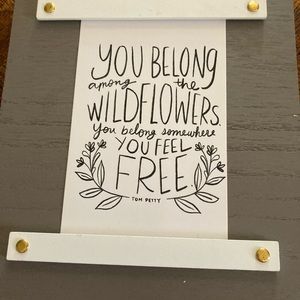 YOU BELONG
among the
WILDFLOWERS.
You belong somewhere
YOU FEEL
FREE.
TOM PETTY